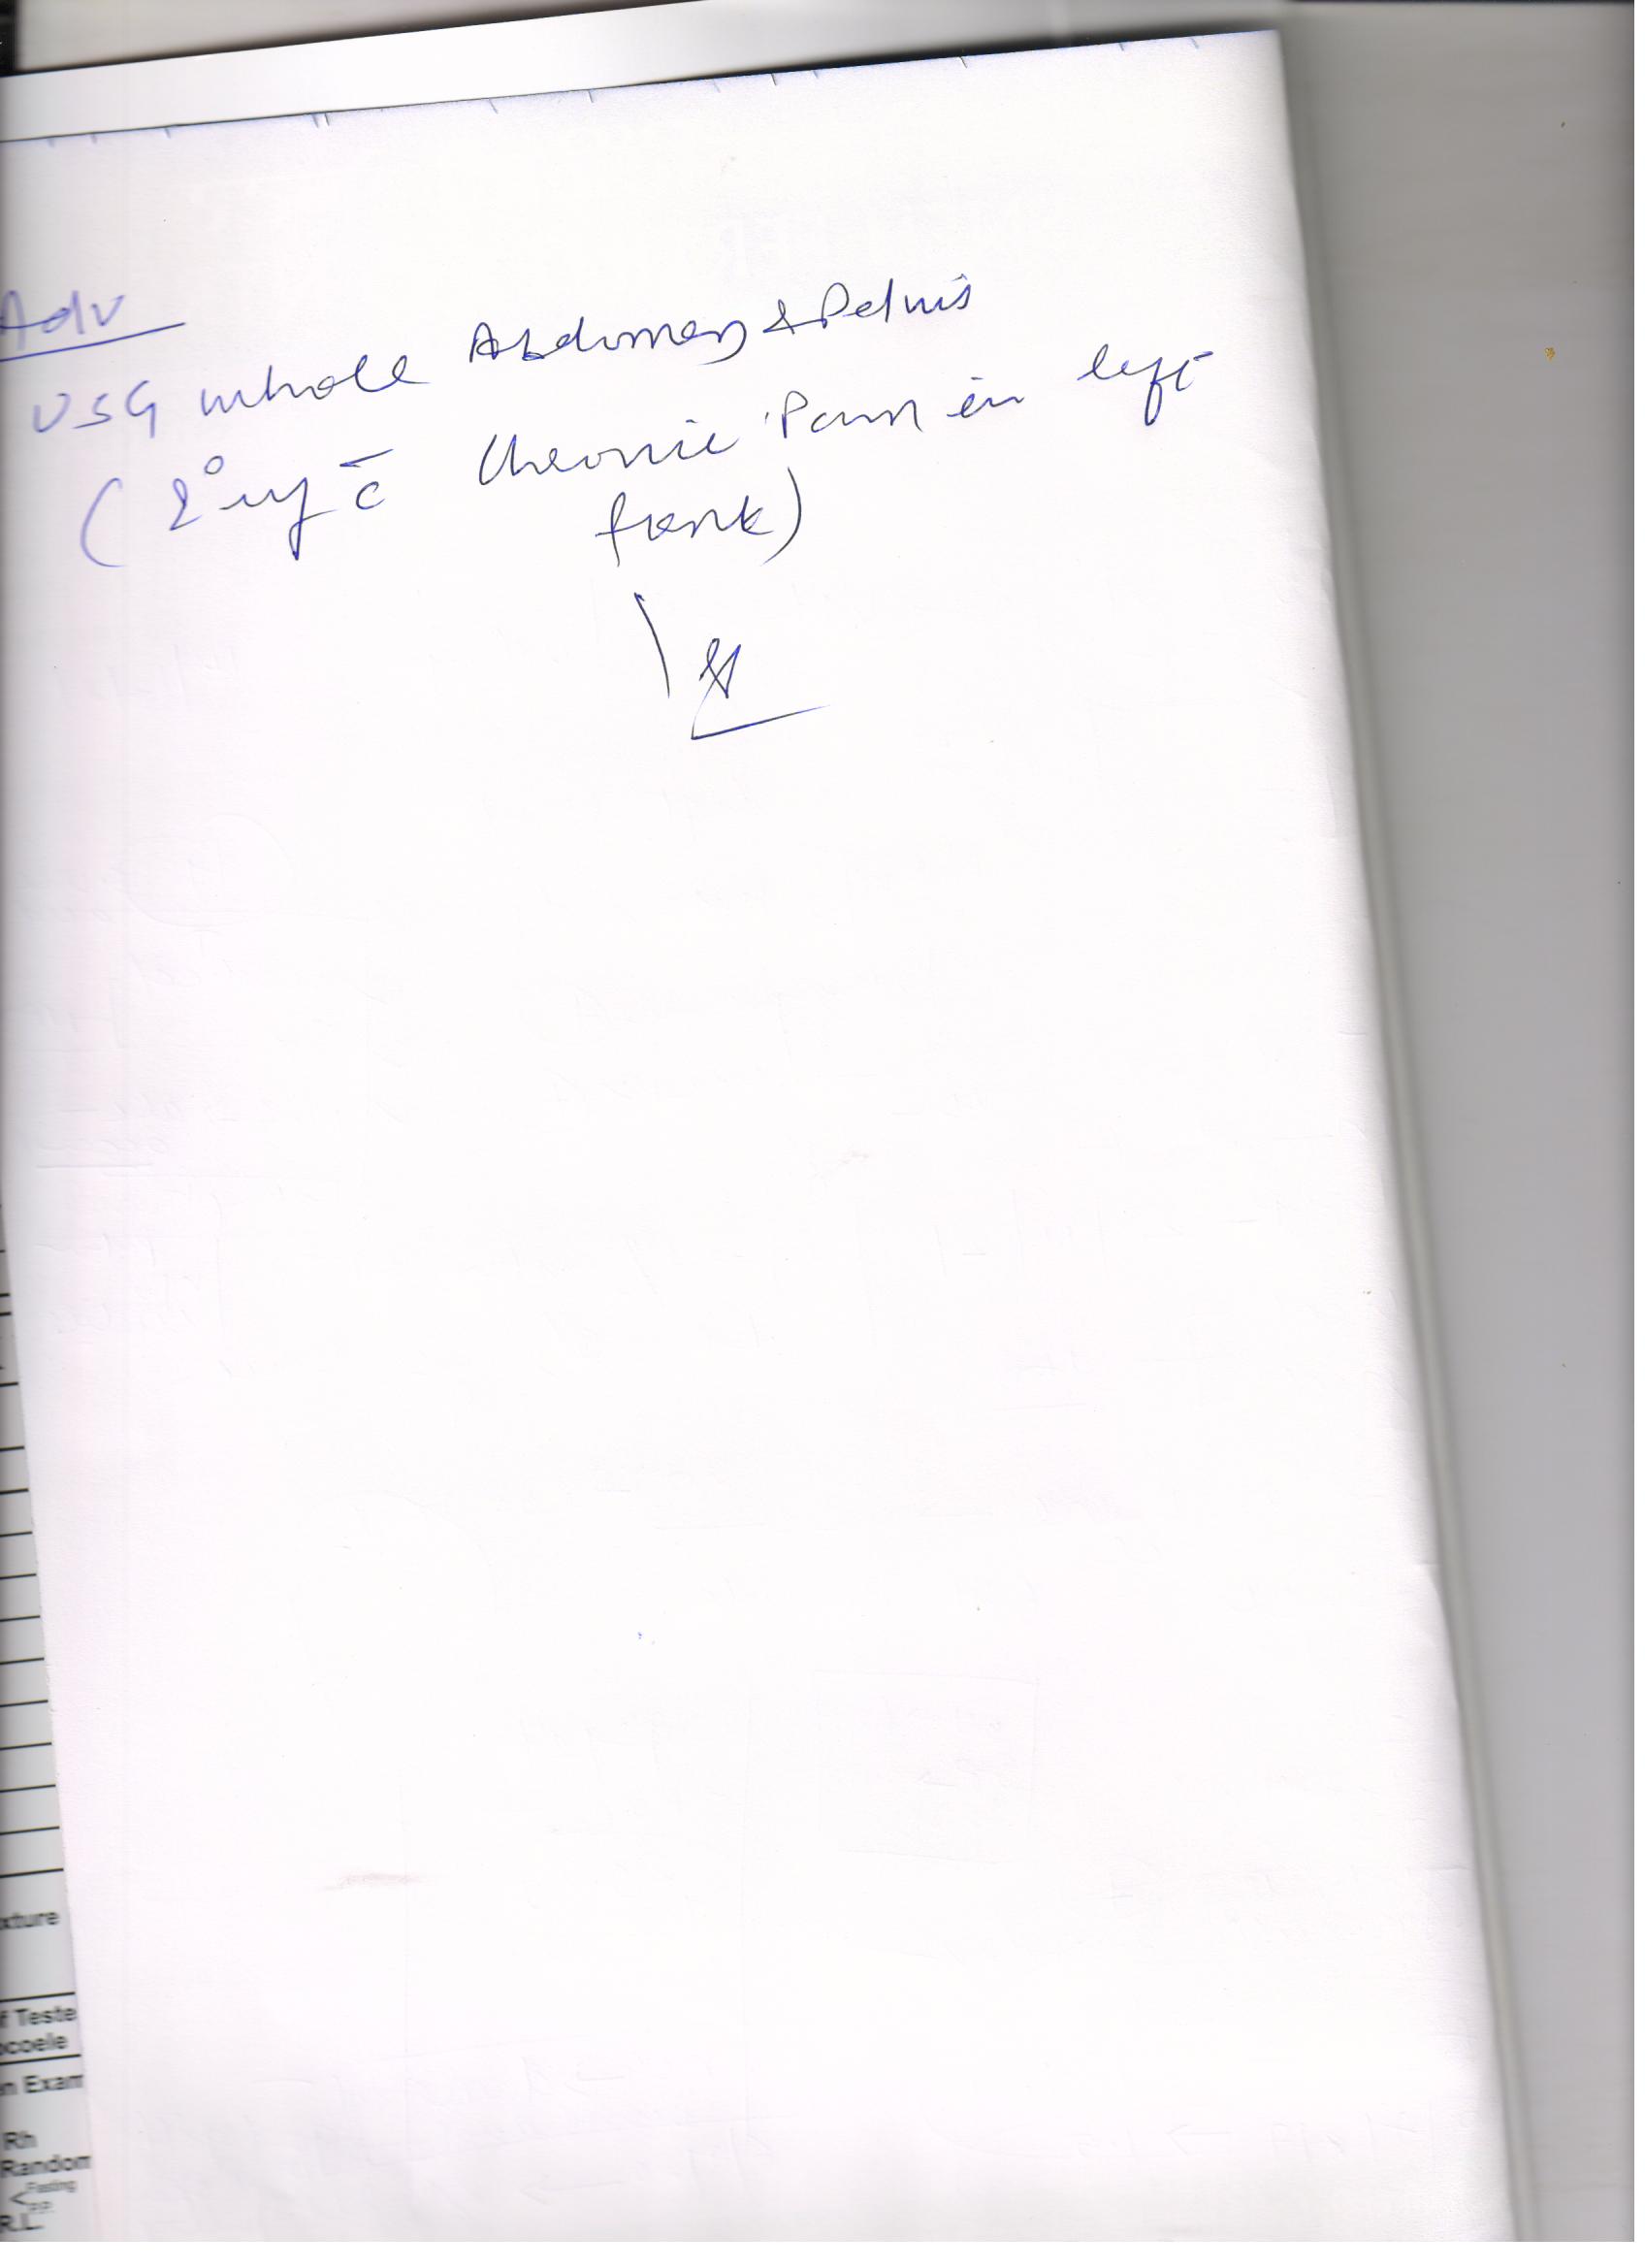 Adv
USG whole Abdomen & Pelvis
(2° inf c̄ Chronic Pain in left
flank)
xture
f Teste
ocoele
n Exam
Rh
Random
Fasting
P.P.
R.L.